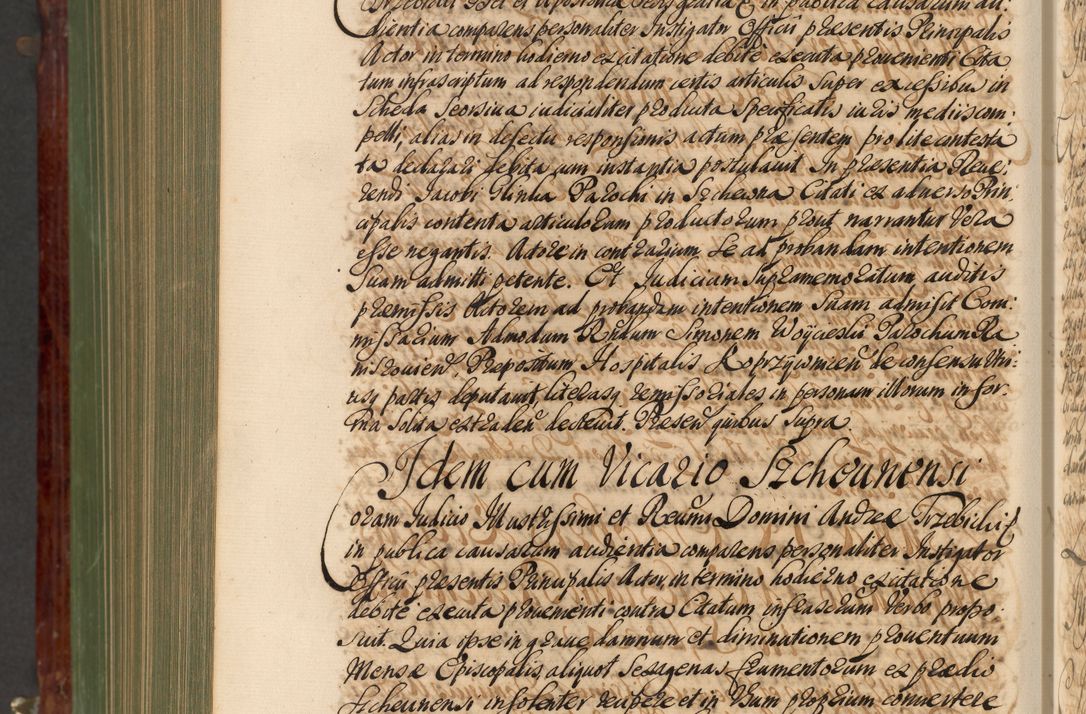 dientia comparens personaliter Instigator Officii præsentis Principalis
Actor in termino hodierno ex citatione debitè executa proveniente Cita
tum infrascriptum ad respondendum certis articulis super excessibus in
Scheda Seorsiva iudicialiter producta Specificatis iuris mediis com:
pelli, alias in defectu responsionis actum præsentem pro lite contesta
ta declarari debita cum instantia postulavit. In præsentia Reve:
rendi Jacobi Parochi in Citati ex adverso Prin:
cipalis contenta articulorum productorum prout narrantur Vera
esse negantis. Actore in contrarium se ad probandam intentionem
Suam admitti petente. Et Judicium Supramemoratum auditis
præmissis Actorem ad probandam intentionem Suam admisit Com:
missarium Admodum Rndum Simonem Parochum Ra
Præpositum Hospitalis Koprzywnicen de consensu utri:
usq partis deputavit, literasq remissoriales in personam illorum in for:
ma Solita extraden decrevit. Præsen quibus Supra.
Idem cum Vicario Szchevnensi
Coram Judicio Illustrissimi et Reverendissimi Domini Andreæ Trzebicki
in publica causarum audientia comparens personaliter Instigator
Officii præsentis Principalis Actor, in termino hodierno ex citatione
debitè executa provenienti contra Citatum infrascriptum Verbo propo:
suit. Quia ipse in grave damnum et diminationem proventuum
Mensæ Episcopalis, aliquot Sexagenas frumentorum ex prædio
Szchevnensi insolenter recipere et in Usum proprium convertere